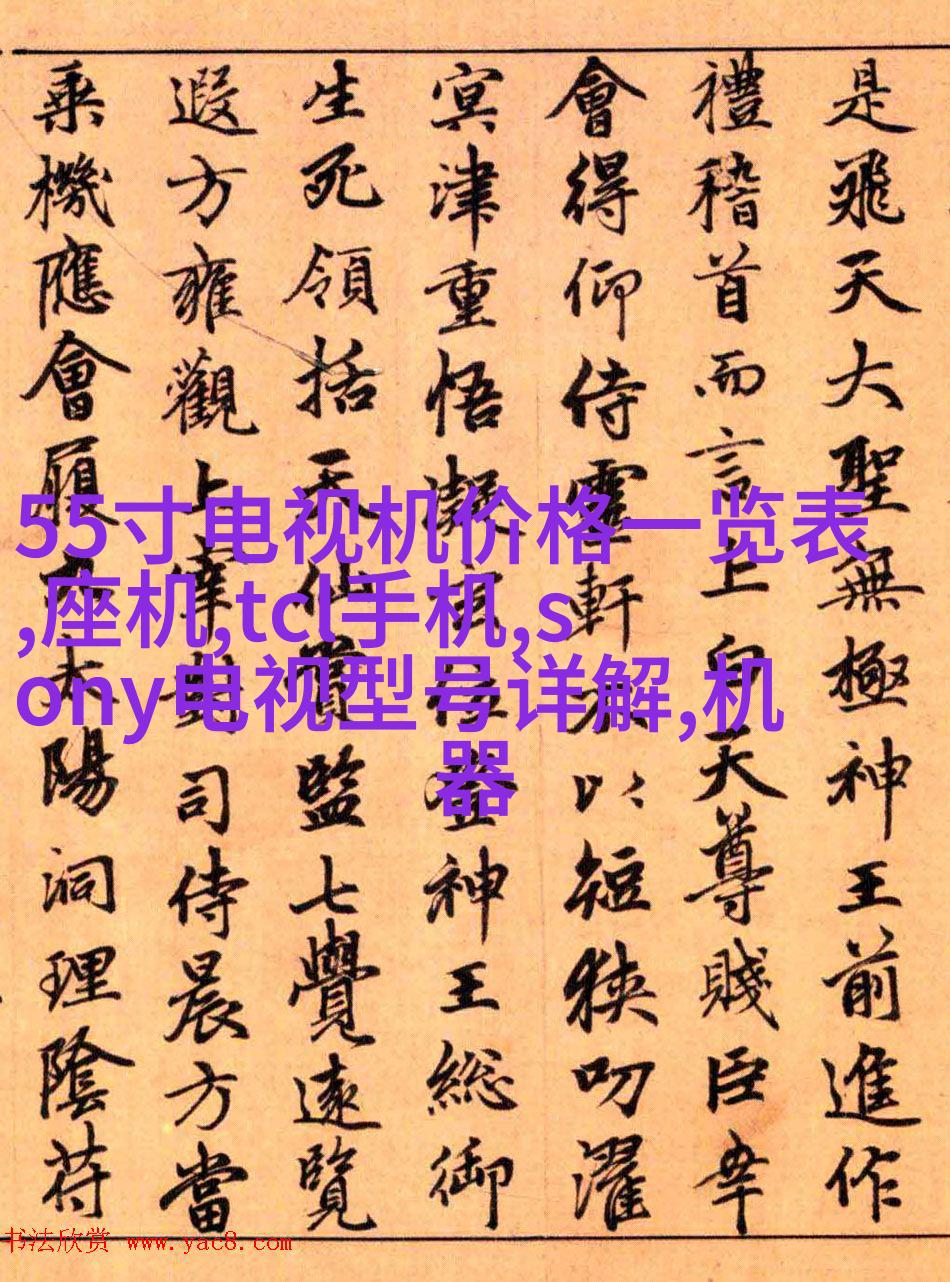 是飛天大聖無極神王前進作
禮稽首而言上白天尊賤臣幸
會得仰侍靈軒以短狹叨濯
冥津重悟凝位登神王総御
生死領括天仙賞監七覺遠覽
遐方雍觀上對司侍晨方當
乘機應會履太陽洞理陰苻
55寸电视机价格一览表
,座机,tcl手机,s
ony电视型号详解,机
器
书法欣赏 www.yac8.com